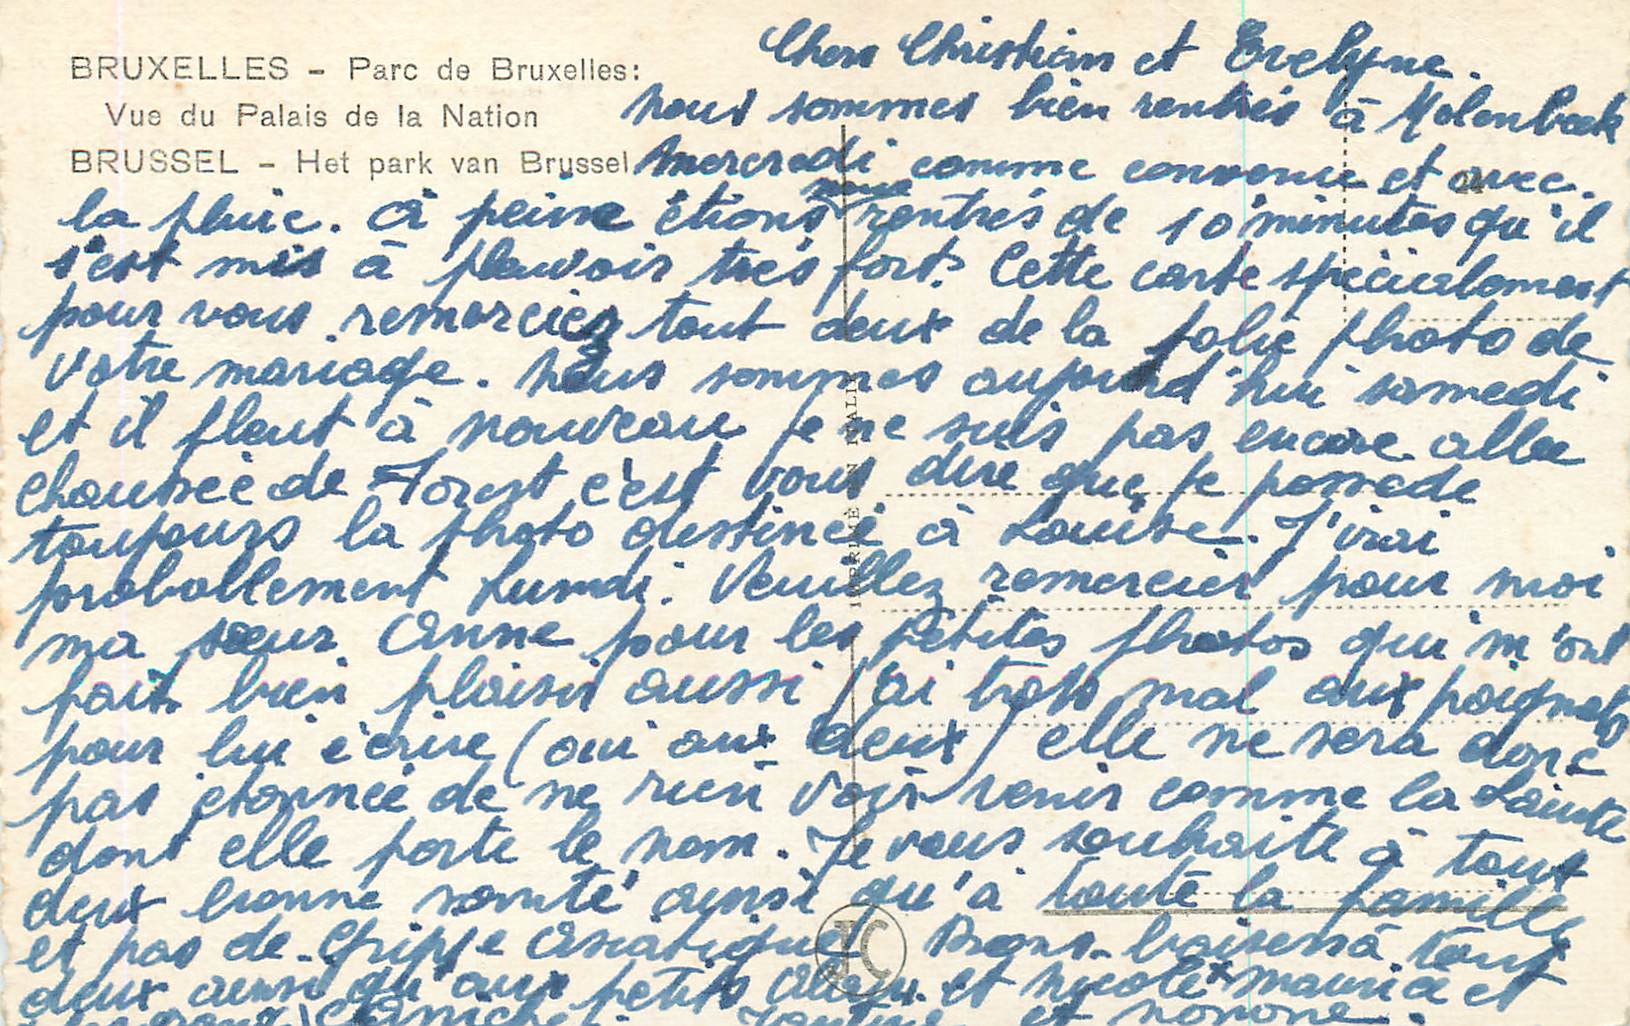 BRUXELLES - Parc de Bruxelles:
Vue du Palais de la Nation
BRUSSEL - Het park van Brussel
Chers Christian et Evelyne.
nous sommes bien rentrés à Molenbeek
mercredi comme convenu et avec
la pluie. à peine étions nous rentrés de 10 minutes qu'il
s'est mis à pleuvoir très fort. Cette carte spécialement
pour vous remercier tout deux de la jolie photo de
votre mariage. nous sommes aujourd'hui samedi
et il pleut à nouveau je ne suis pas encore allée
chaussée de Forest c'est vous dire que je possede
toujours la photo destinée à Louise. J'irai
proballement Lundi. Veuillez remercier pour moi
ma sœur Anne pour les petites photos qui m'ont
fait bien plaisir aussi j'ai trop mal aux poignets
pour lui écrire (oui aux deux) elle ne sera donc
pas étonnée de ne rien voir venir comme la Sainte
dont elle porte le nom. Je vous souhaite à tout
deux bonne santé ainsi qu'à toute la famille
et pas de grippe asiatique. Bons baisers à tout
deux ainsi qu'aux petits et Nicole Maurice et
et
IMPRIMÉ EN ITALIE
JC